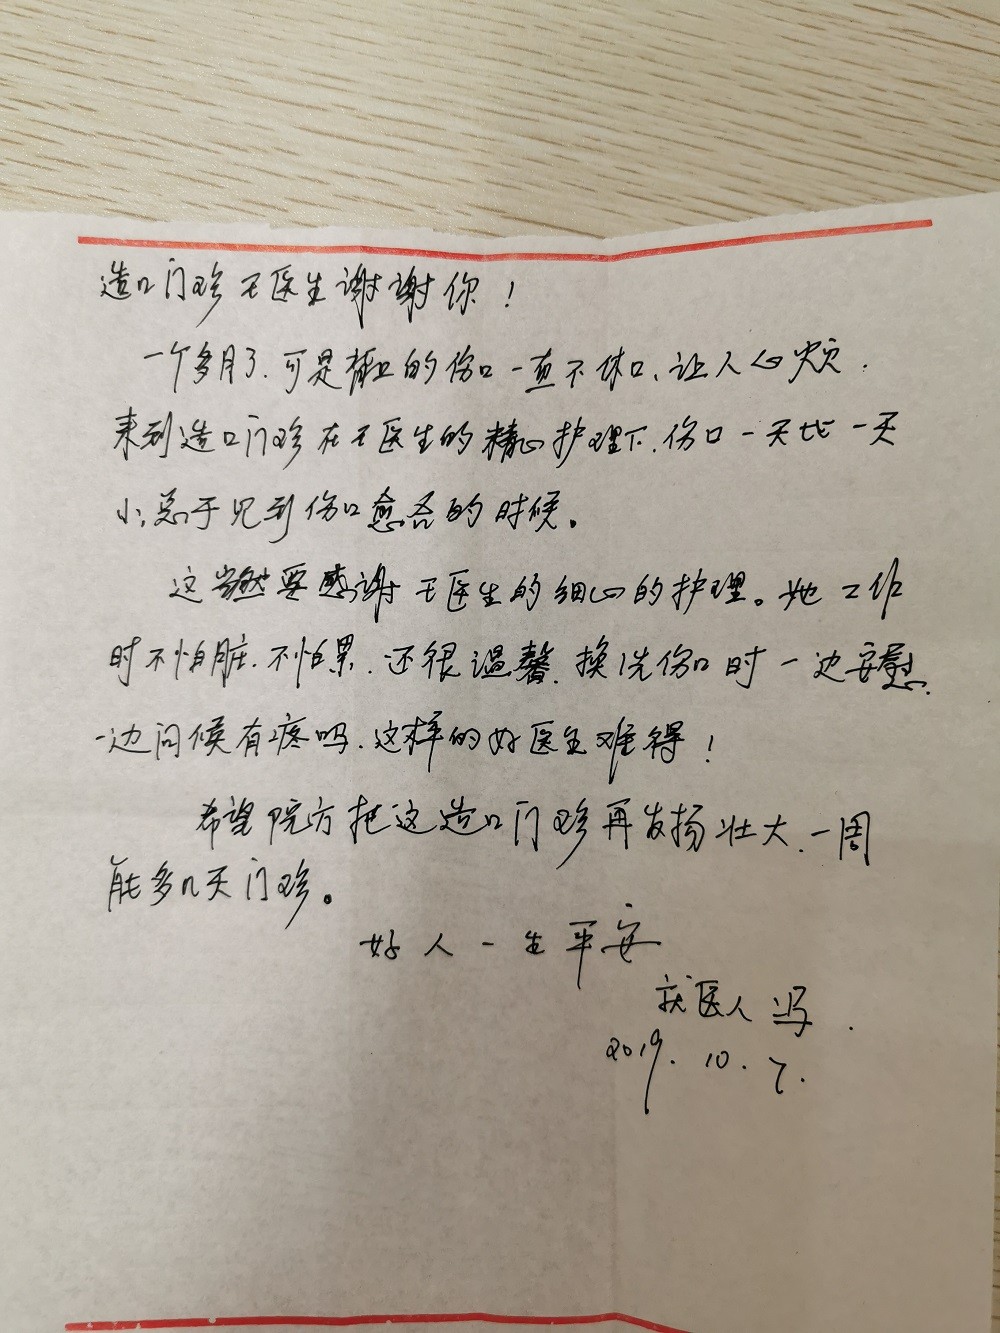 造口门诊王医生谢谢你！
一个多月了.可是都的伤口一直不休口、让人心烦.
来到造口门诊在王医生的精心护理下.伤口一天比一天
小,总于见到伤口愈合的时候。
这当然要感谢王医生的细心的护理。她工作
时不怕脏.不怕累.还很温馨.换洗伤口时一边安慰.
一边问候有疼吗.这样的好医生难得！
希望院方把这造口门诊再发扬壮大.一周
能多几天门诊。
好人一生平安
就医人 冯.
2019.10.7.